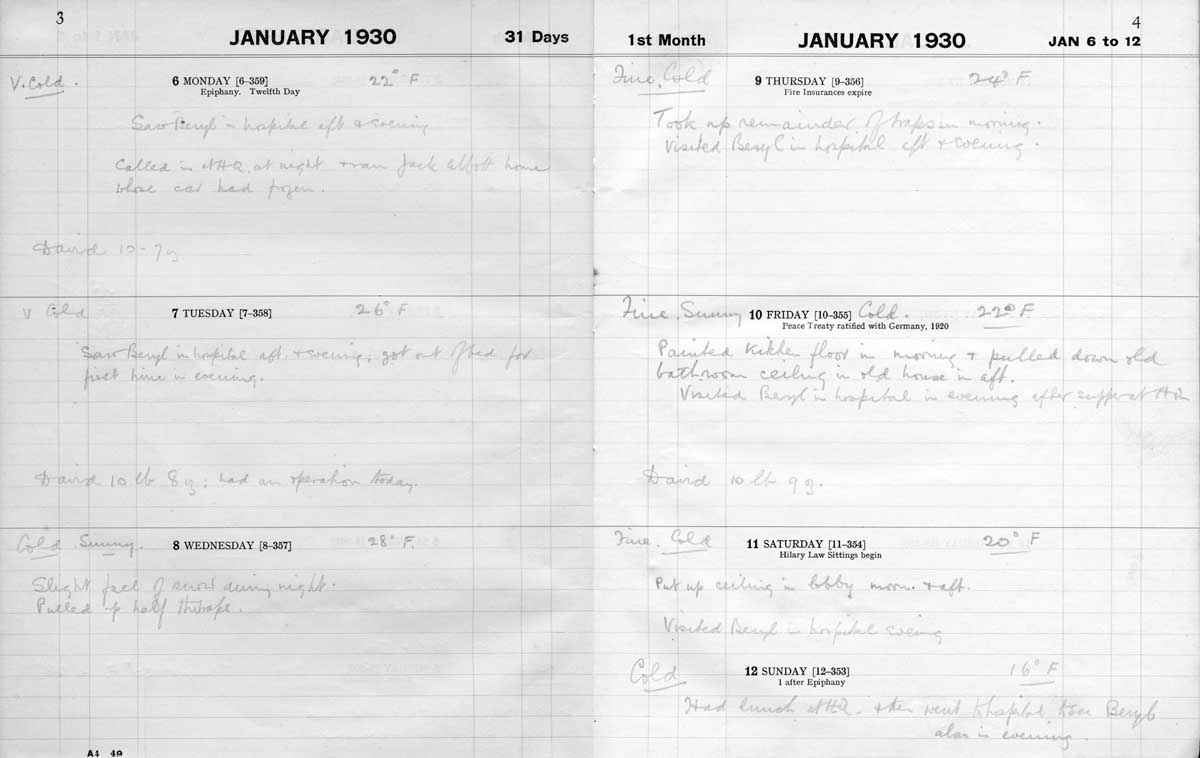 3
JANUARY 1930 31 Days
V. Cold. 6 MONDAY [6–359] 22° F
Epiphany. Twelfth Day
Saw Beryl in hospital aft & evening
Called in at HQ. at night & ran Jack Abbott home
whose car had frozen.
David 10 - 7
V Cold 7 TUESDAY [7–358] 26° F
Saw Beryl in hospital aft. & evening; got out of bed for
first time in evening.
David 10 lb 8; had an operation today.
Cold Sunny. 8 WEDNESDAY [8–357] 28° F.
Slight fall of snow during night.
Pulled up half the traps.
A4 49
4
1st Month JANUARY 1930 JAN 6 to 12
Fine, Cold 9 THURSDAY [9–356] 24° F
Fire Insurances expire
Took up remainder of traps in morning.
Visited Beryl in hospital aft & evening.
Fine, Sunny 10 FRIDAY [10–355] Cold. 22° F
Peace Treaty ratified with Germany, 1920
Painted kitchen floor in morning & pulled down old
bathroom ceiling in old house in aft.
Visited Beryl in hospital in evening after supper at
David 10 lb 9
Fine. Cold 11 SATURDAY [11–354] 20° F
Hilary Law Sittings begin
Put up ceiling in lobby morn. & aft.
Visited Beryl in hospital evening
Cold 12 SUNDAY [12–353] 16° F
1 after Epiphany
Had lunch at HQ. & then went to hospital to see Beryl
also in evening.